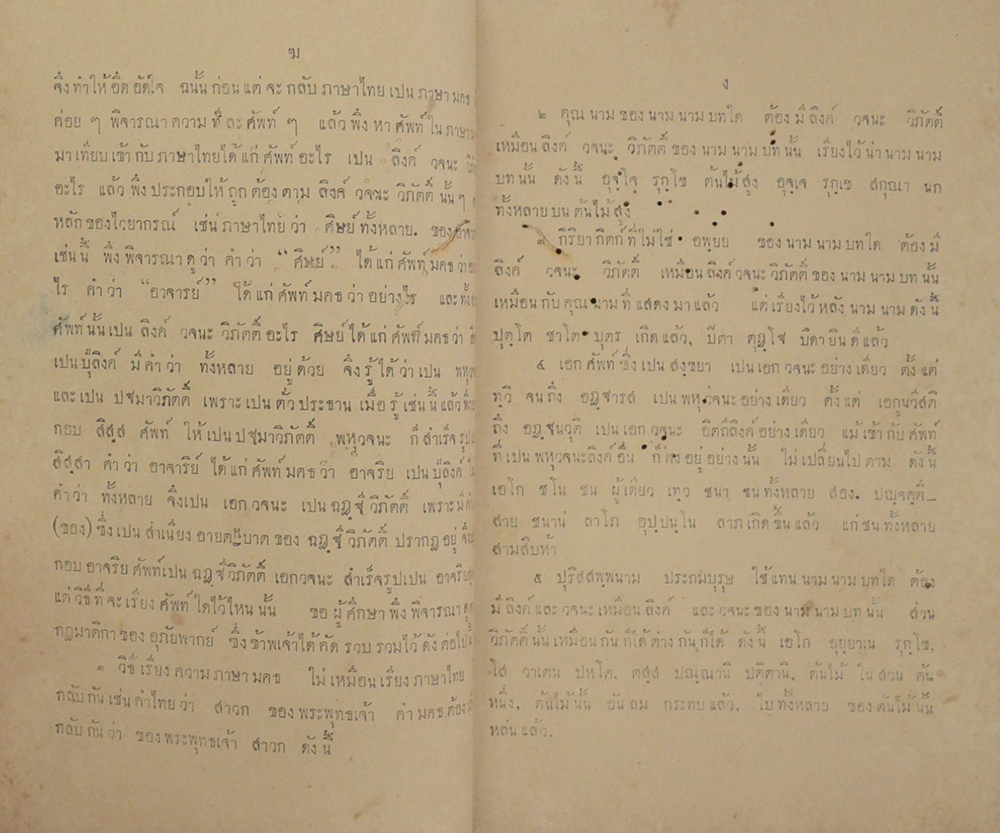 ฆ
จึ่งทำให้อึดอัดใจ ฉนั้นก่อนแต่จะกลับภาษาไทยเปนภาษามคธ
ค่อย ๆ พิจารณาความที่ละศัพท์ ๆ แล้วพึ่งหาศัพท์ในภาษาม
มาเทียบเข้ากับภาษาไทยได้แก่ศัพท์อะไร เปน ลึงค์ วจนะ
อะไร แล้วพึ่งประกอบให้ถูกต้องตาม ลึงค์ วจนะ วิภัตติ์ นั้น ๆ
หลักของไวยากรณ์ เช่นภาษาไทยว่า ศิษย์ทั้งหลาย. ของ
เช่นนี้ พึ่งพิจารณาดูว่า คำว่า “ศิษย์” ได้แก่ศัพท์มคธว่า
ไร คำว่า “อาจารย์” ได้แก่ศัพท์มคธว่าอย่างไร และทั้ง
ศัพท์นั้นเปน ลึงค์ วจนะ วิภัตติ์อะไร ศิษย์ได้แก่ศัพท์มคธว่า
เปนปุํลึงค์ มีคำว่า ทั้งหลาย อยู่ด้วย จึ่งรู้ได้ว่าเปน พหุว
และเปน ปฐมาวิภัตติ์ เพราะเปนตัวประธาน เมื่อรู้เช่นนี้แล้วพึ่ง
กอบ สิสฺส ศัพท์ ให้เปนปฐมาวิภัตติ์ พหุวจนะ ก็สำเร็จรูป
สิสฺสา คำว่า อาจาริย์ ได้แก่ศัพท์มคธว่า อาจริย เปนปุํลึงค์
คำว่า ทั้งหลาย จึ่งเปน เอกวจนะ เปนฉฏฺฐีวิภัตติ์ เพราะมี
(ของ) ซึ่งเปนสำเนียงอายตนิบาตของ ฉฏฺฐีวิภัตติ์ ปรากฏอยู่
กอบอาจริยศัพท์เปนฉฏฺฐีวิภัตติ์ เอกวจนะ สำเร็จรูปเปน อาจริย
แต่วิธีที่จะเรียงศัพท์ใดไว้ไหนนั้น ขอผู้ศึกษาพึ่งพิจารณา
กฎมาติกาของอุภัยพากย์ ซึ่งข้าพเจ้าได้คัดรวบรวมไว้ดังต่อไป
๑ วิธีเรียงความภาษามคธ ไม่เหมือนเรียงภาษาไทย
กลับกันเช่นคำไทยว่า สาวก ของพระพุทธเจ้า คำมคธต้อง
กลับกันว่า ของพระพุทธเจ้า สาวก ดังนี้
ง
๒ คุณนามของนามนามบทใด ต้องมีลึงค์ วจนะ วิภัตติ์
เหมือนลึงค์ วจนะ วิภัตติ์ของนามนามบทนั้น เรียงไว้น่านามนาม
บทนั้น ดังนี้ อุจฺโจ รุกฺโข ต้นไม้สูง อุจฺเจ รุกฺเข สกุณา นก
ทั้งหลายบนต้นไม้สูง
๓ กิริยากิตก์ที่ไม่ใช่ อพฺยย ของนามนามบทใด ต้องมี
ลึงค์ วจนะ วิภัตติ์ เหมือนลึงค์วจนะวิภัตติ์ของนามนามบทนั้น
เหมือนกับคุณนามที่แสดงมาแล้ว แต่เรียงไว้หลังนามนามดังนี้
ปุตฺโต ชาโต บุตร เกิดแล้ว, ปิตา ตุฏฺโฐ บิดายินดีแล้ว
๔ เอกศัพท์ซึ่งเปนสงฺขยา เปนเอกวจนะอย่างเดียว ตั้งแต่
ทฺวิ จนถึง อฏฺฐารส เปนพหุวจนะอย่างเดียว ตั้งแต่ เอกูนวีสติ
ถึง อฏฺฐนวุติ เปนเอกวจนะ อิตถีลึงค์อย่างเดียว แม้เข้ากับศัพท์
ที่เปนพหุวจนะลึงค์อื่น ก็คงอยู่อย่างนั้น ไม่เปลี่ยนไปตาม ดังนี้
เอโก ชโน ชน ผู้เดียว เทฺว ชนา ชนทั้งหลาย สอง. ปญฺจตฺตึ–
สาย ชนานํ ลาโภ อุปฺปนฺโน ลาภเกิดขึ้นแล้ว แก่ชนทั้งหลาย
สามสิบห้า
๕ ปุริสสพฺพนาม ประถมบุรุษ ใช้แทนนามนามบทใด ต้อง
มีลึงค์และวจนะเหมือนลึงค์ และวจนะของนามนามบทนั้น ส่วน
วิภัตตินั้นเหมือนกันก็ได้ต่างกันก็ได้ ดังนี้ เอโก อุยฺยาเน รุกฺโข,
โส วาเตน ปหโต, ตสฺส ปณฺณานิ ปติตานิ, ต้นไม้ ในสวน ต้น
หนึ่ง, ต้นไม้นั้น อันลม กระทบแล้ว, ใบทั้งหลาย ของต้นไม้นั้น
หล่นแล้ว,